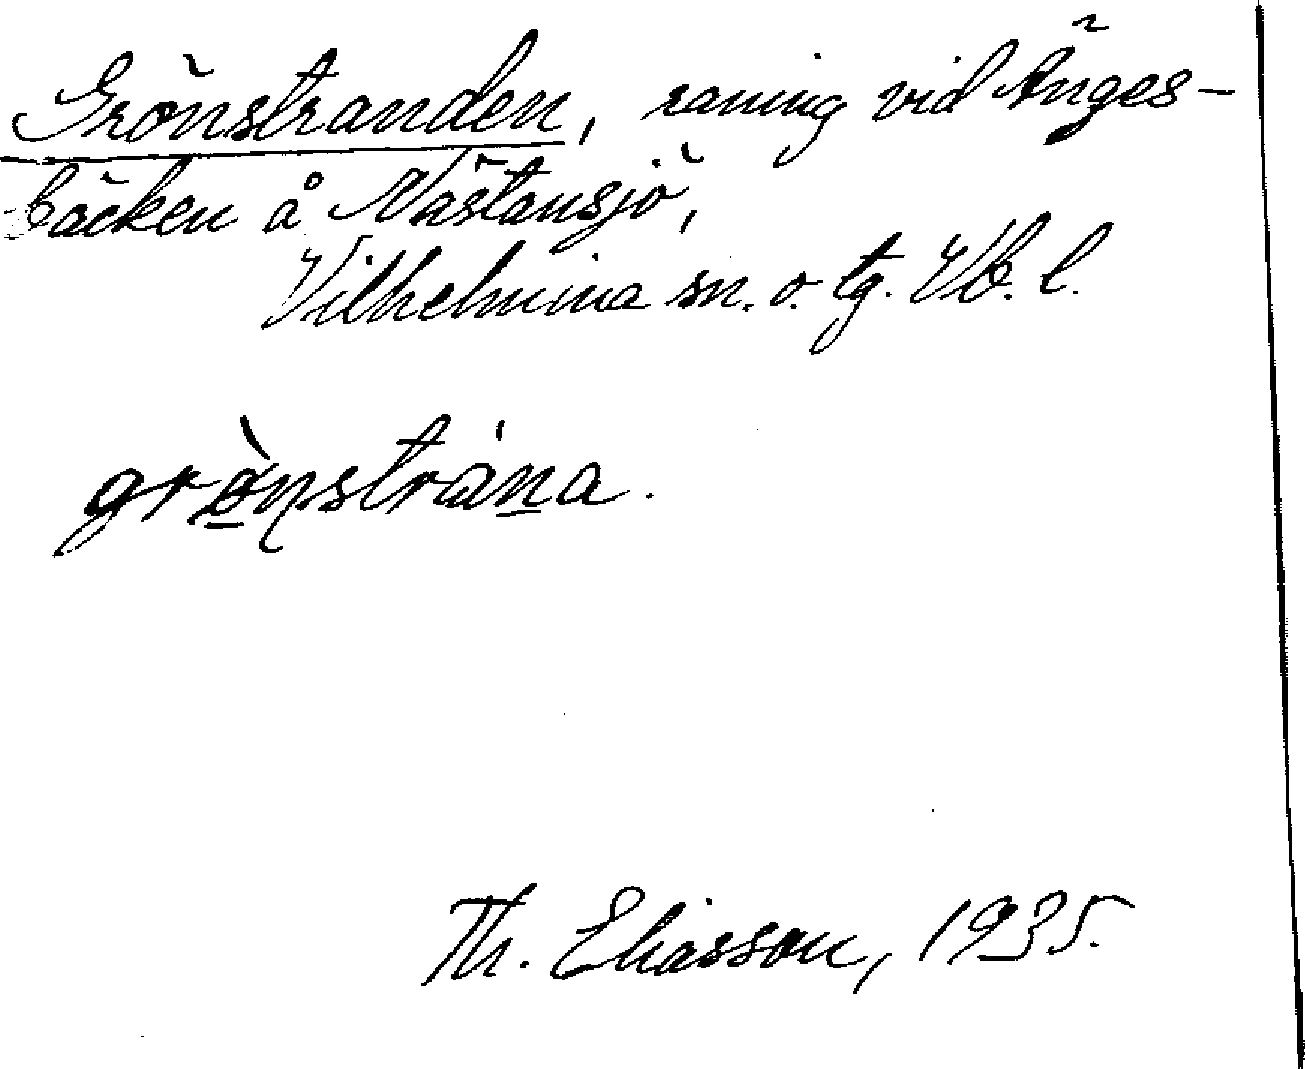 Grönstranden, raning vid Änges-
bäcken å Nästansjö,
Vilhelmina sn. o. tg. Vb. l.
grø̀nstrána.
Th. Eliasson, 1935.